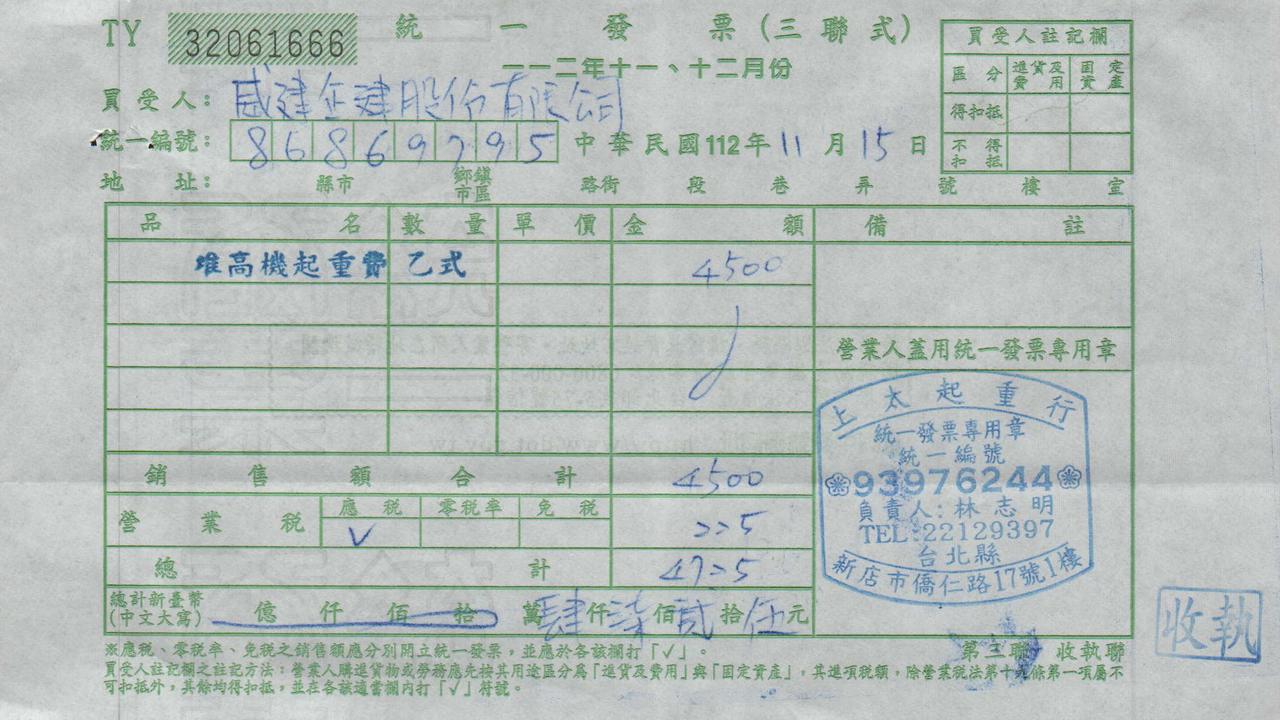 TY 32061666 統一發票(三聯式)
一一二年十一、十二月份
買受人註記欄
區分 進貨及費用 固定資產
得扣抵
不得扣抵
買受人: 威建企建股份有限公司
統一編號: 86869795 中華民國112年11月15日
地址: 縣市 鄉鎮市區 路街 段 巷 弄 號 樓 室
品名 數量 單價 金額 備註
堆高機起重費 乙式 4500
營業人蓋用統一發票專用章
銷售額合計 4500
營業稅 應稅 零稅率 免稅
V 225
總計 4725
總計新臺幣(中文大寫) 億仟佰拾萬肆仟柒佰貳拾伍元
上太起重行
統一發票專用章
統一編號
93976244
負責人:林志明
TEL:22129397
台北縣
新店市僑仁路17號1樓
收執
第三聯 收執聯
※應稅、零稅率、免稅之銷售額應分別開立統一發票,並應於各該欄打「✓」。
買受人註記欄之註記方法:營業人購進貨物或勞務應先按其用途區分為「進貨及費用」與「固定資產」,其進項稅額,除營業稅法第十九條第一項屬不
可扣抵外,其餘均得扣抵,並在各該適當欄內打「✓」符號。